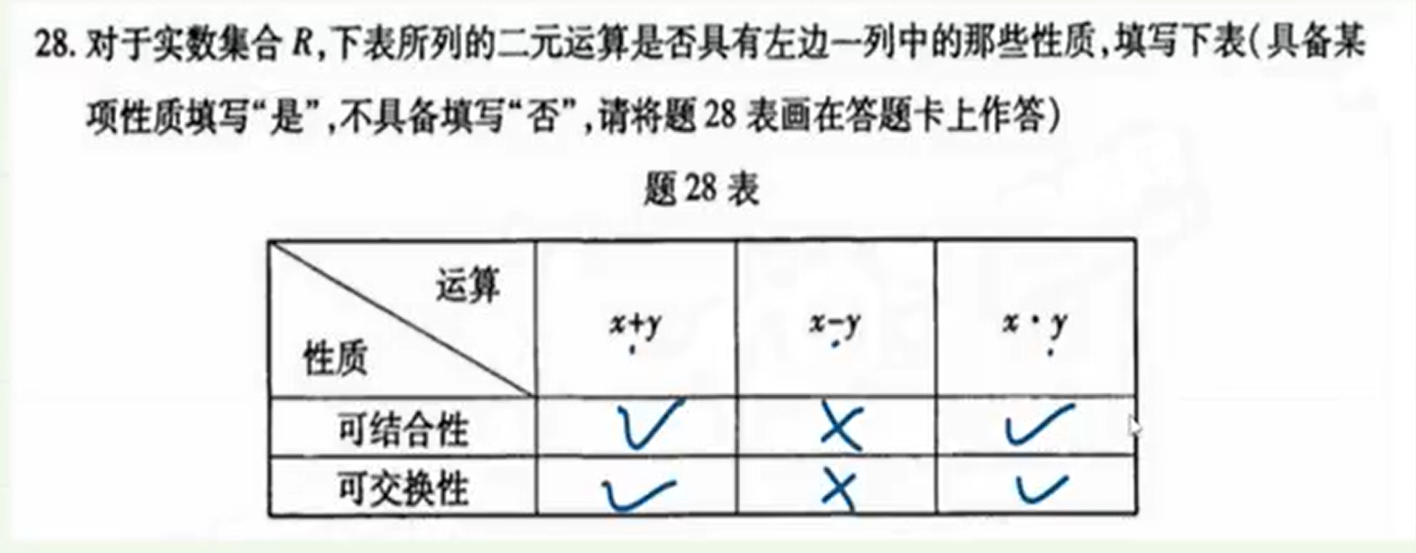 28. 对于实数集合 R,下表所列的二元运算是否具有左边一列中的那些性质,填写下表(具备某
项性质填写“是”,不具备填写“否”,请将题 28 表画在答题卡上作答)
题 28 表
运算
性质
x+y
x-y
x·y
可结合性 ✓ × ✓
可交换性 ✓ × ✓